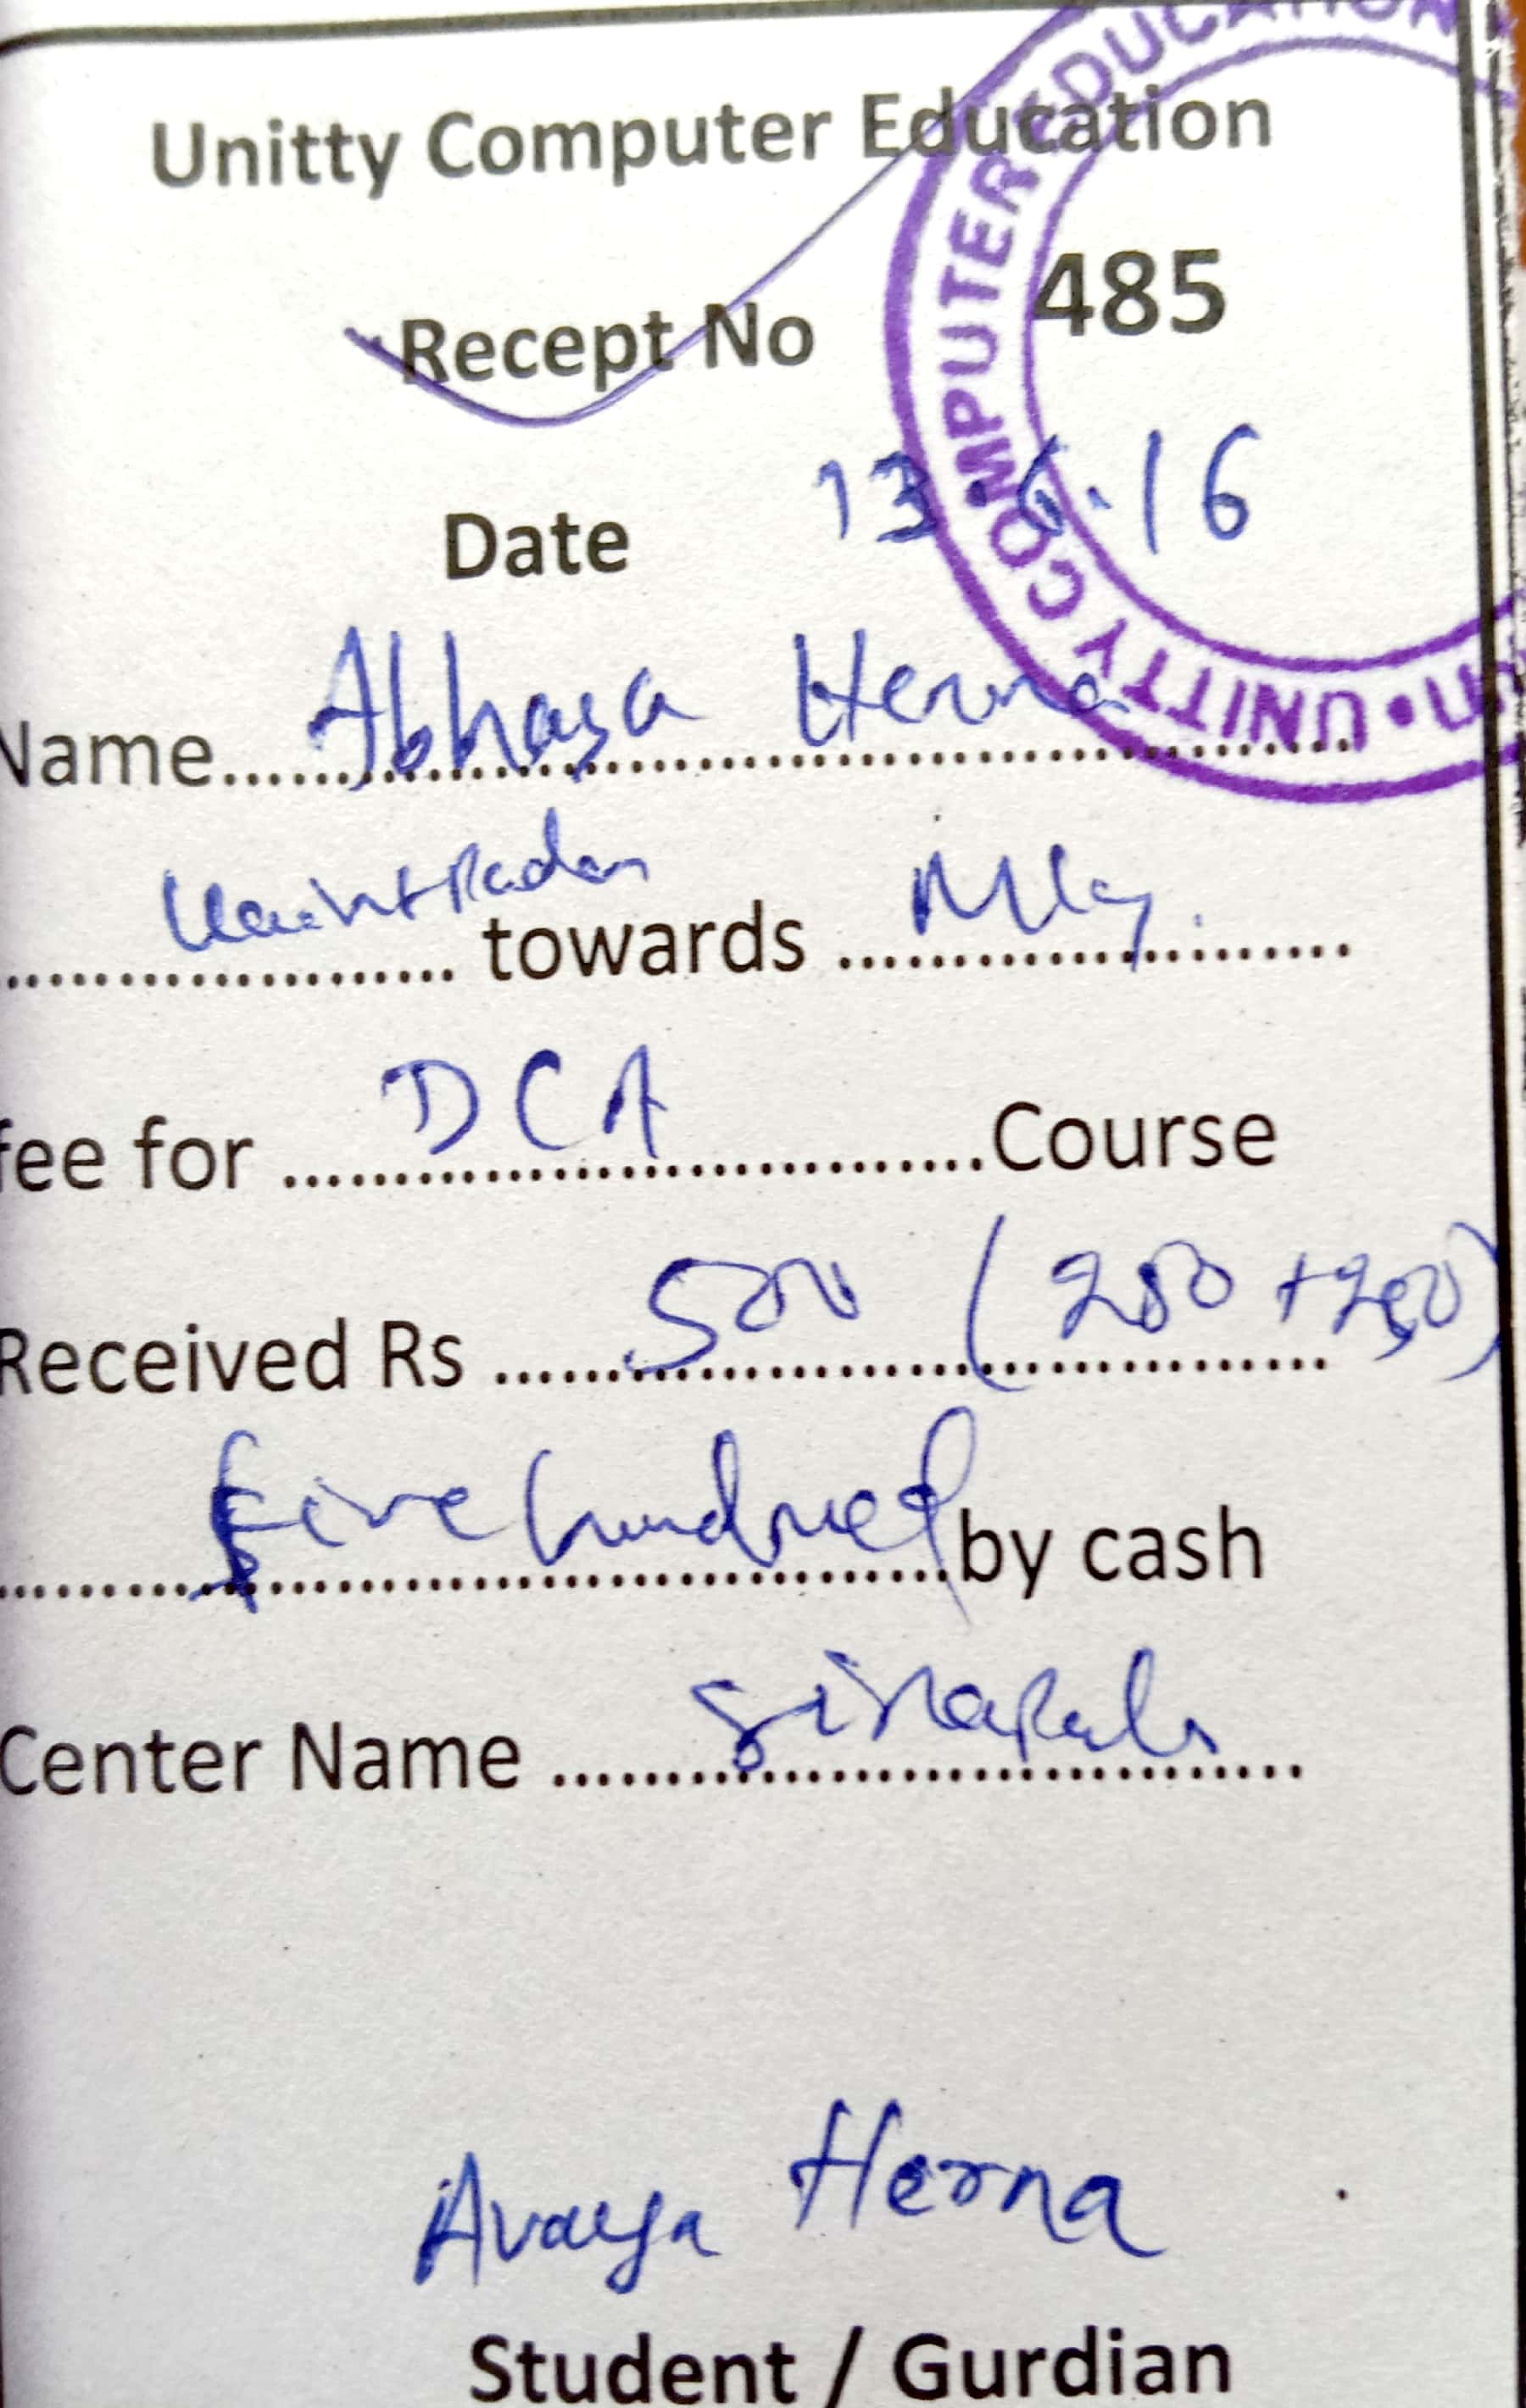 Unitty Computer Education
Recept No 485
Date 13.6.16
Name.......Abhaya Herna.......
.................... towards ....................
fee for ....DCA....Course
Received Rs ....500 (250 +250)
....five hundred....by cash
Center Name ....Sinapali....
Avaya Herna
Student / Gurdian
UNITTY COMPUTER EDUCATION